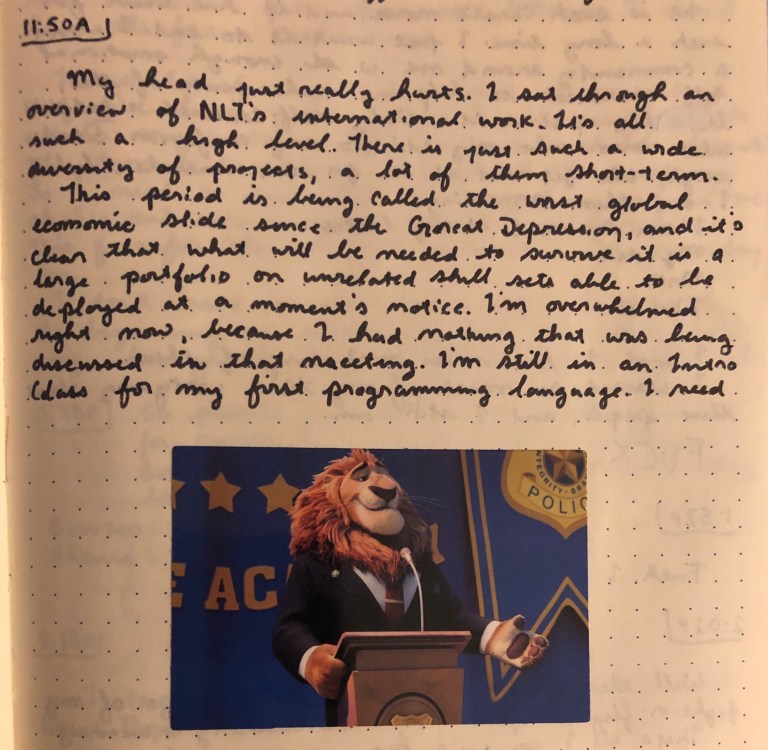 11:50A
My head just really hurts. I sat through an
overview of NLT's international work. It's all
such a high level. There is just such a wide
diversity of projects, a lot of them short-term.
This period is being called the worst global
economic slide since the Great Depression, and it's
clear that what will be needed to survive it is a
large portfolio on unrelated skill sets able to be
deployed at a moment's notice. I'm overwhelmed
right now, because I had nothing that was being
discussed in that meeting. I'm still in an Intro
Class for my first programming language. I need
INTEGRITY
POLIC
E AC